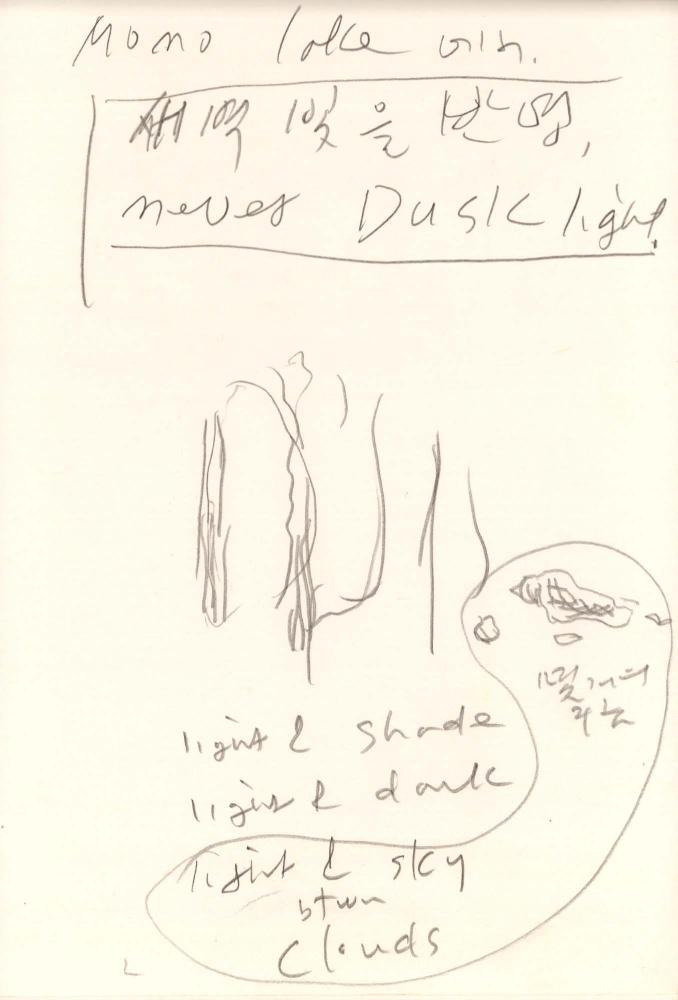 Mono lake
새벽 빛을 반영,
never Dusk light.
light & shade
light & dark
light & sky
btwn
clouds